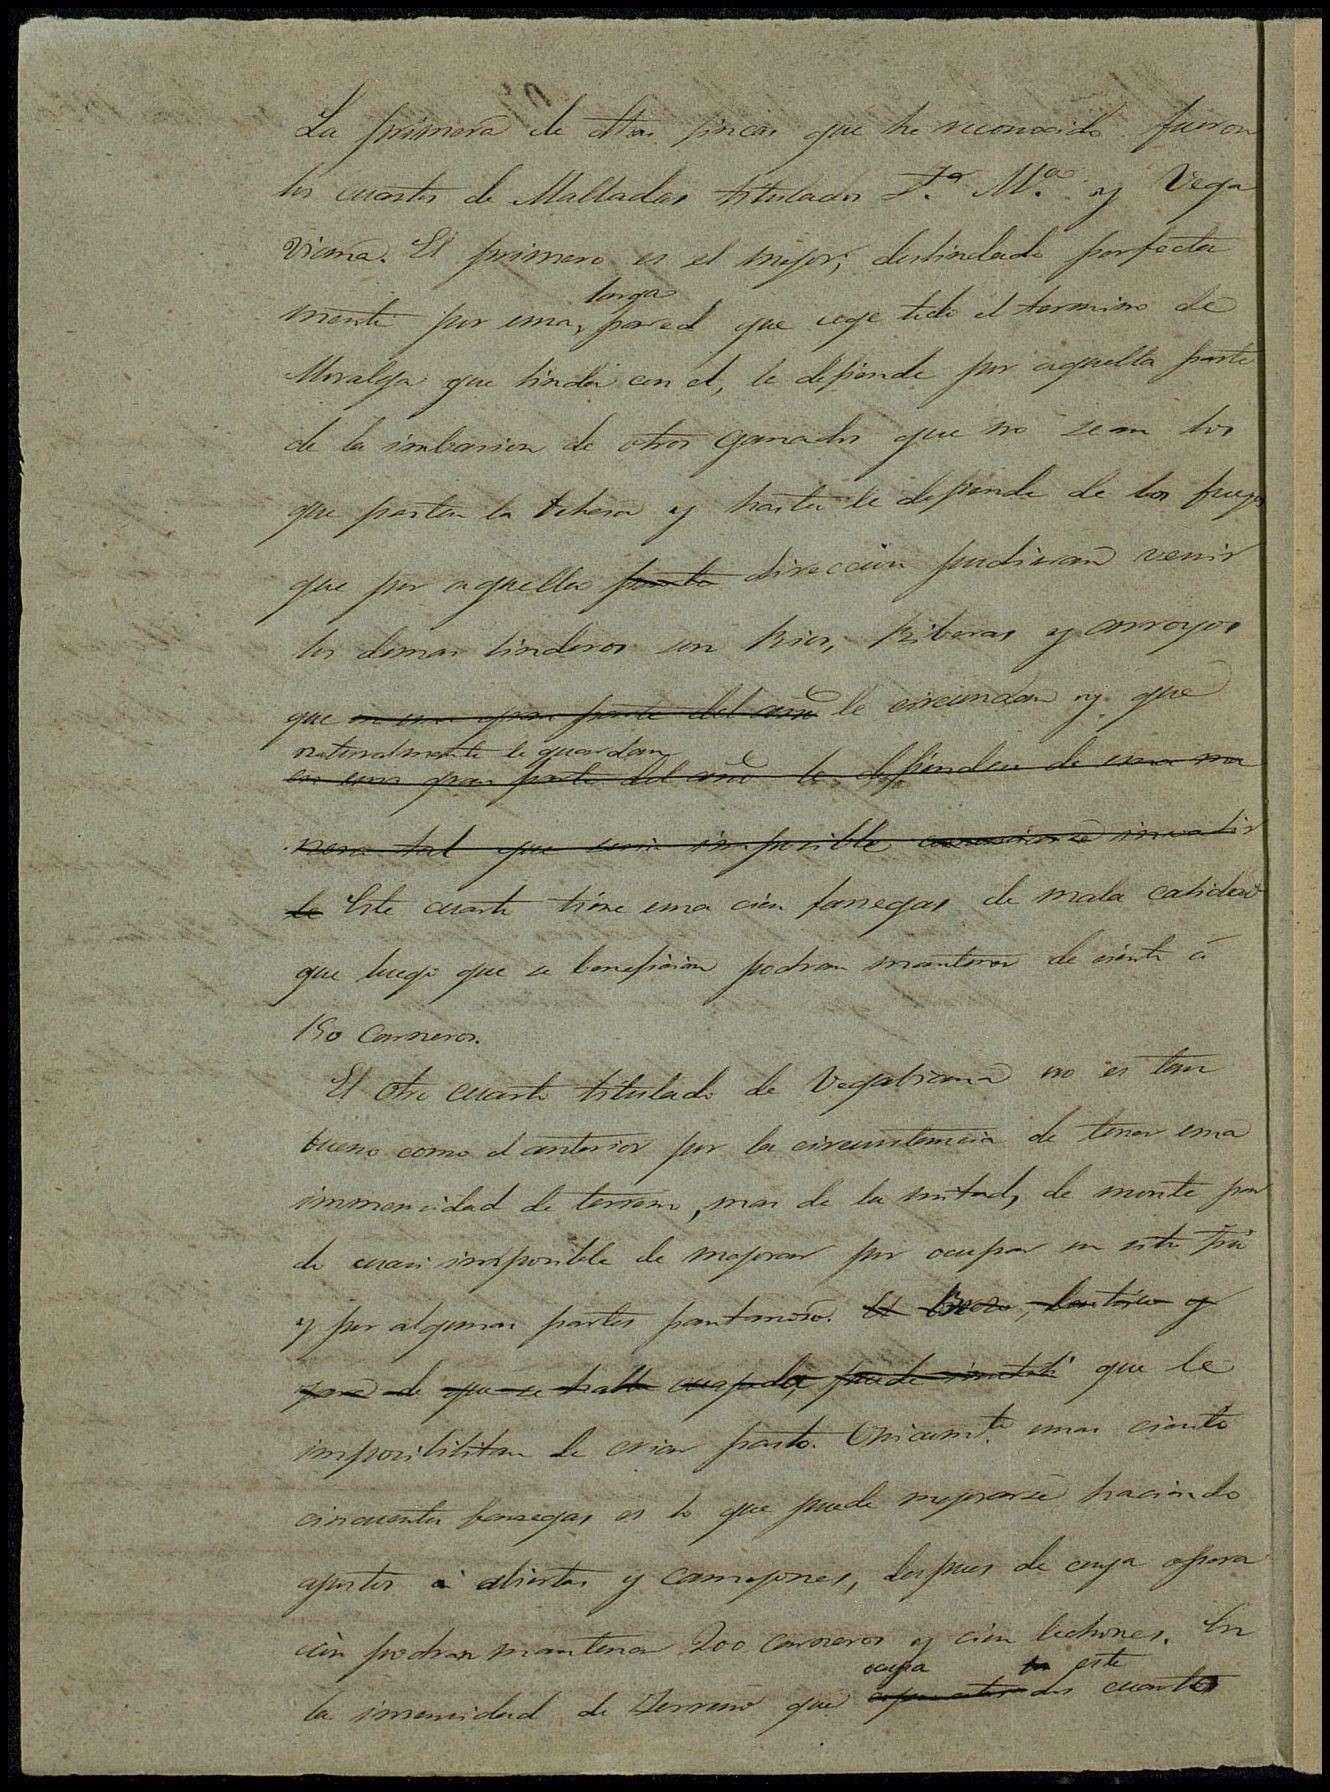 La primera de estas fincas que he reconocido fueron
los cuartos de Malladas titulados Sª Mª y Vega
viana. El primero es el mejor, deslindado perfecta
larga
mente por una pared que coge todo el termino de
Moraleja que linda con el, le defiende por aquella parte
de la imbasion de otros ganados que no sean los
que pastan la dehesa y hasta le defiende de los fuegos
que por aquella parte direccion pudieran venir
los demas linderos son Rios, Riberas y arroyos
que en una gran parte del año le circundan y que
naturalmente le guardan
en una gran parte del año le defienden de una ma
nera tal que seria imposible invadir
le Este cuarto tiene una cien fanegas de mala calidad
que luego que se beneficien podran mantener de ciento á
150 Carneros.
El otro cuarto titulado de Vegabiana no es tan
bueno como el anterior por la circunstancia de tener una
inmensidad de terreno, mas de la mitad, de monte par
do cuasi imposible de mejorar por ocupar un sitio frio
y por algunas partes pantanoso. El Brezo, y
que se halla que le
imposibilitan de criar pasto. Unicamte unas ciento
cincuenta fanegas es lo que puede mejorarse haciendo
apostos á abiertas y camejones, despues de cuya opera
cion podran mantener 200 carneros y cien lechones. En
ocupa este
la inmensidad de Terreno que dos cuartos